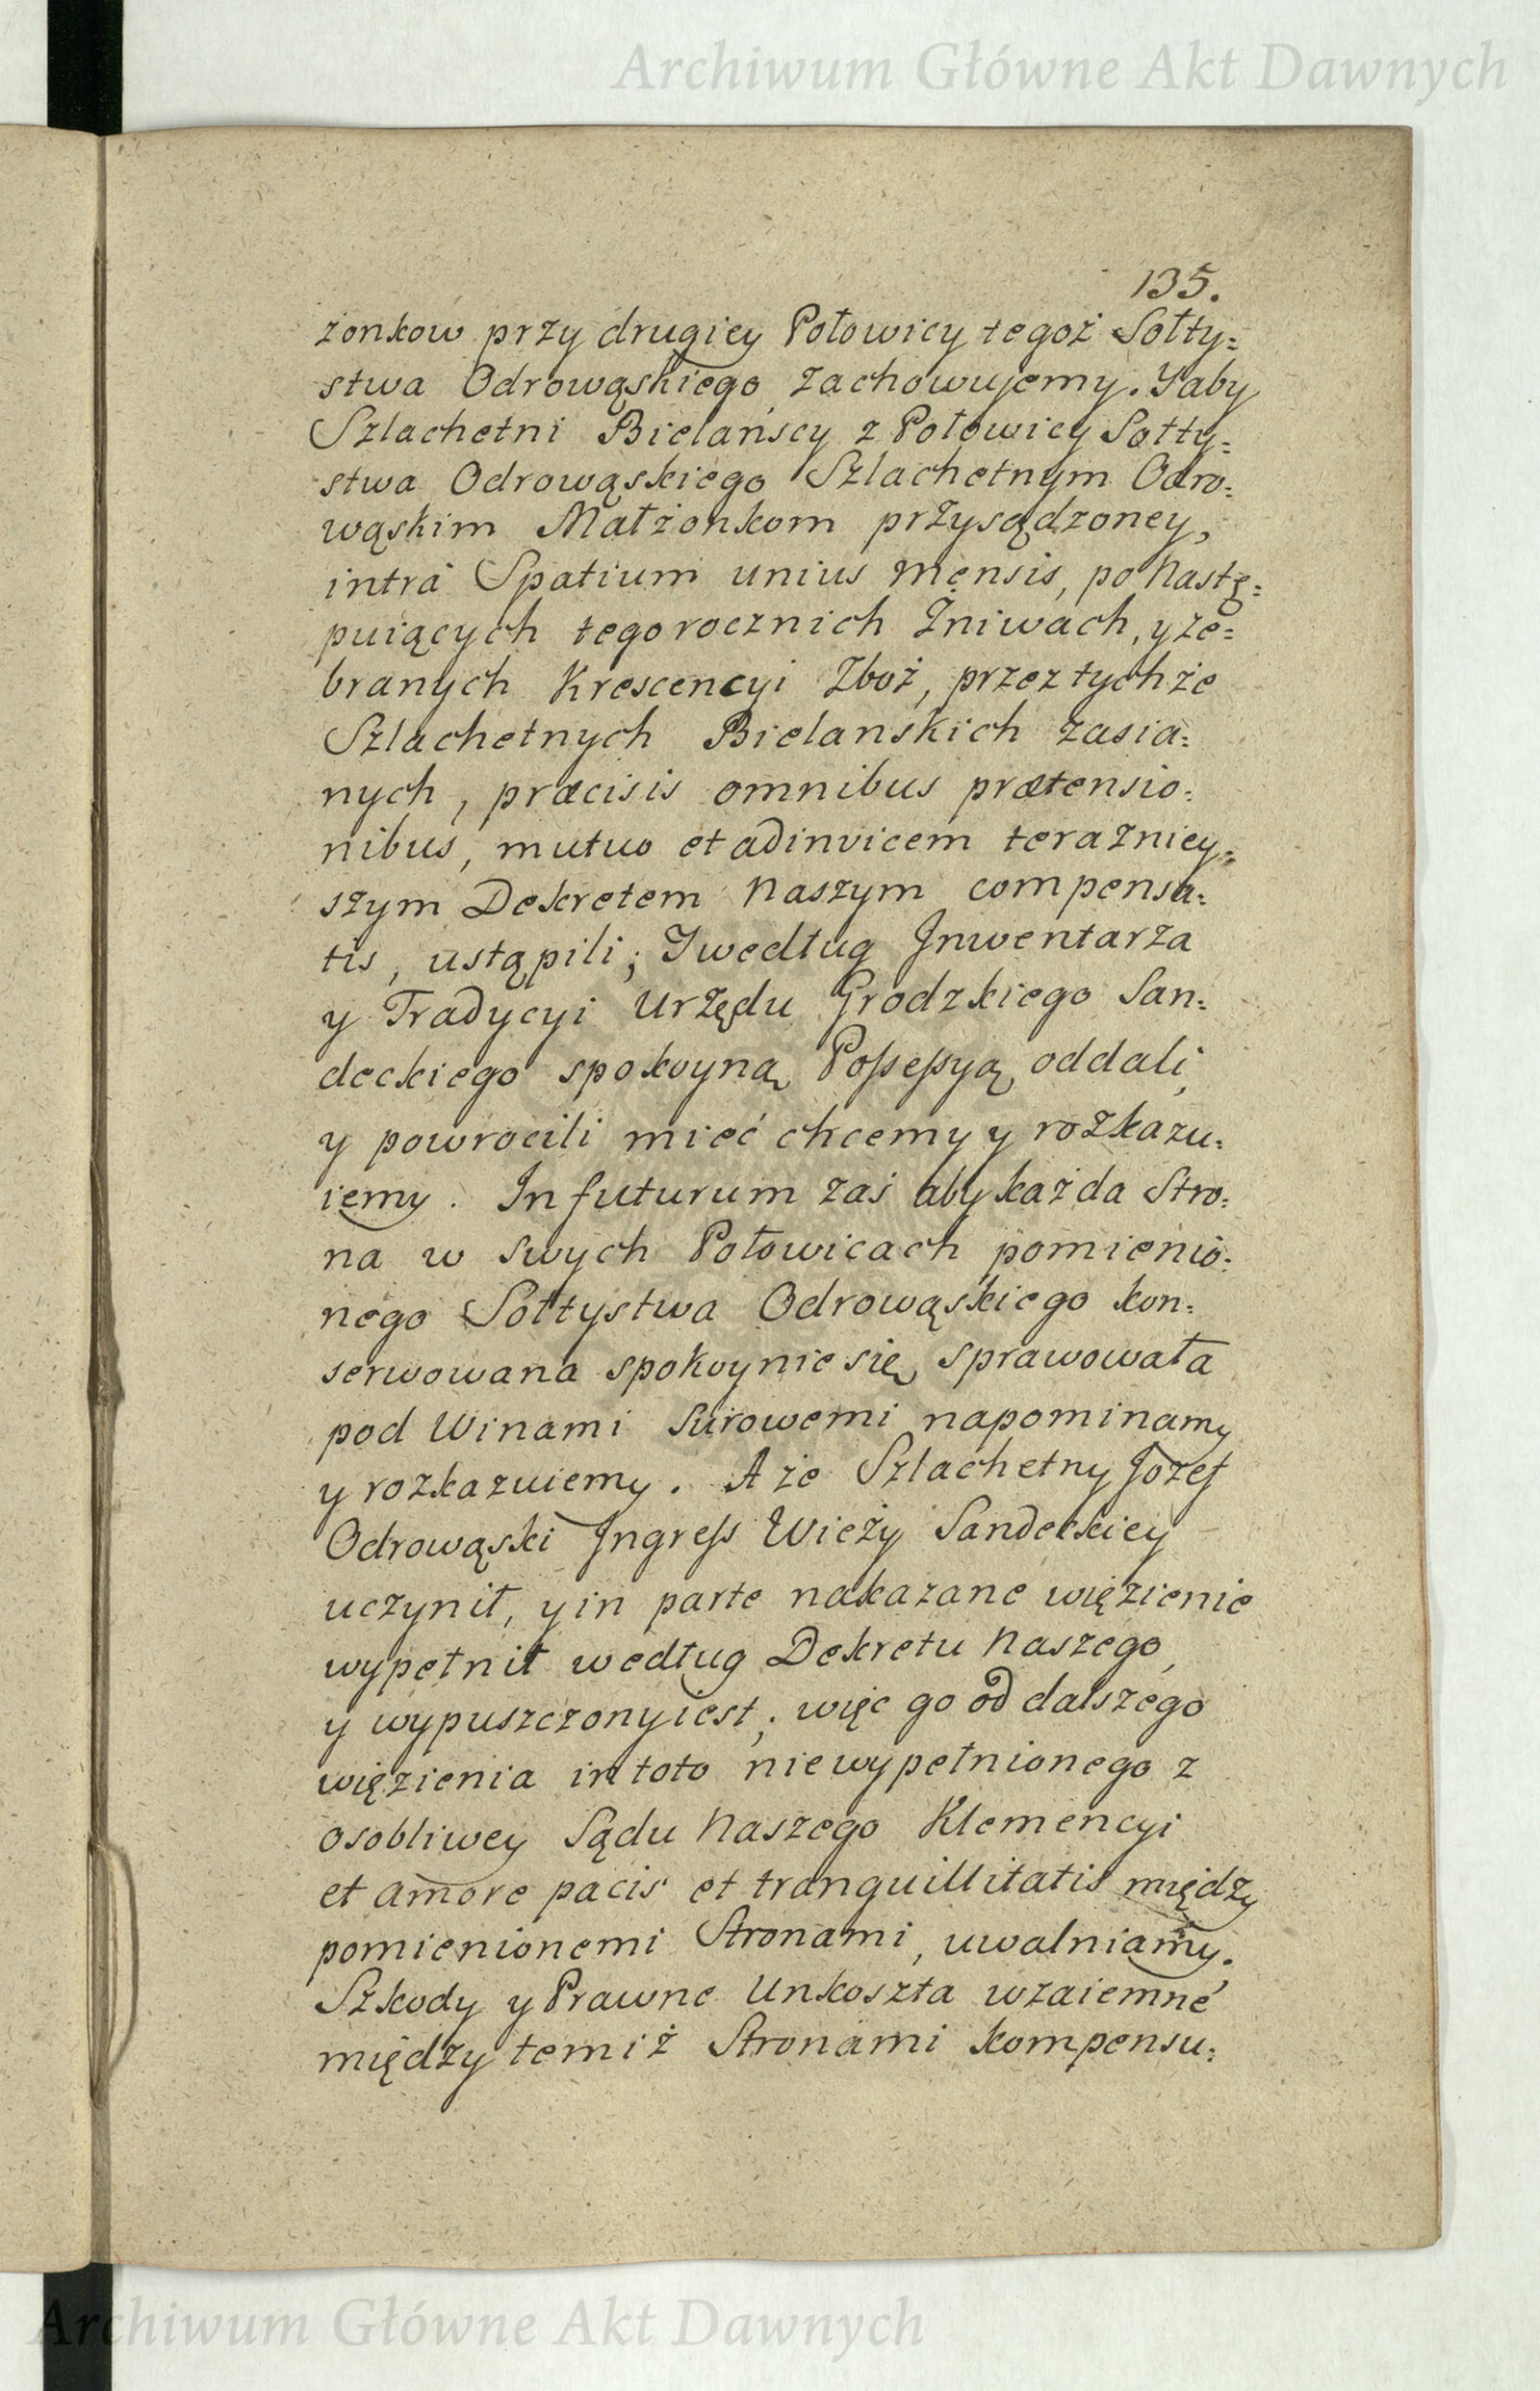 Archiwum Główne Akt Dawnych
135.
żonkow przy drugiey Połowicy tegoż Sołty=
stwa Odrowąskiego zachowujemy. Yaby
Szlachetni Bielańscy z Połowicy Sołty=
stwa Odrowąskiego Szlachetnym Odro=
wąskim Małżonkom przysądzoney,
intra Spatium unius mensis, po Nastę=
puiących tegorocznich Żniwach, y ze=
branych Krescencyi Zboż, przez tychże
Szlachetnych Bielanskich zasia=
nych, præcisis omnibus prætensio=
nibus, mutuo et adinvicem terazniey=
szym Dekretem Naszym compensa=
tis, ustąpili; Y według Inwentarza
y Tradycyi Urzędu Grodzkiego San=
deckiego spokoyną Poſseſsyą oddali,
y powrocili mieć chcemy y rozkazu=
iemy. In futurum zaś aby każda Stro=
na w swych Połowicach pomienio=
nego Sołtystwa Odrowąskiego kon=
serwowana spokoynie się sprawowała
pod Winami Surowemi napominamy
y rozkazuiemy. A że Szlachetny Jozef
Odrowąski Ingreſs Wieży Sandeckiey
uczynił, y in parte nakazane więzienie
wypełnił według Dekretu Naszego,
y wypuszczony iest; więc go od dalszego
więzienia in toto niewypełnionego z
osobliwey Sądu Naszego Klemencyi
et amore pacis et tranquillitatis między
pomienionemi Stronami, uwalniamy.
Szkody y Prawne Unkoszta wzaiemne
między temiż Stronami kompensu=
Archiwum Główne Akt Dawnych